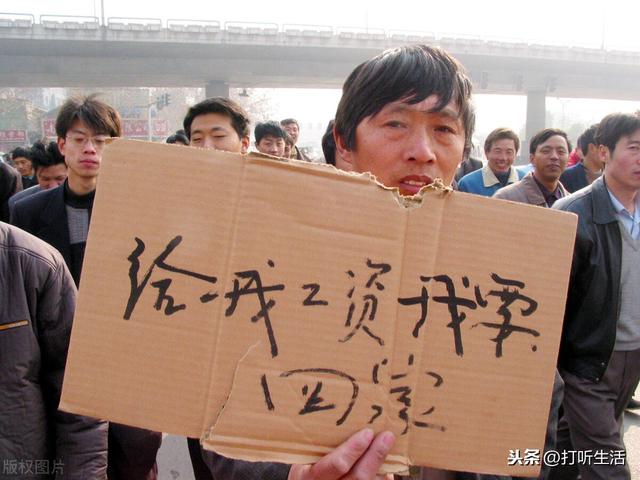 给我工资我要
回家
头条@打听生活
版权图片